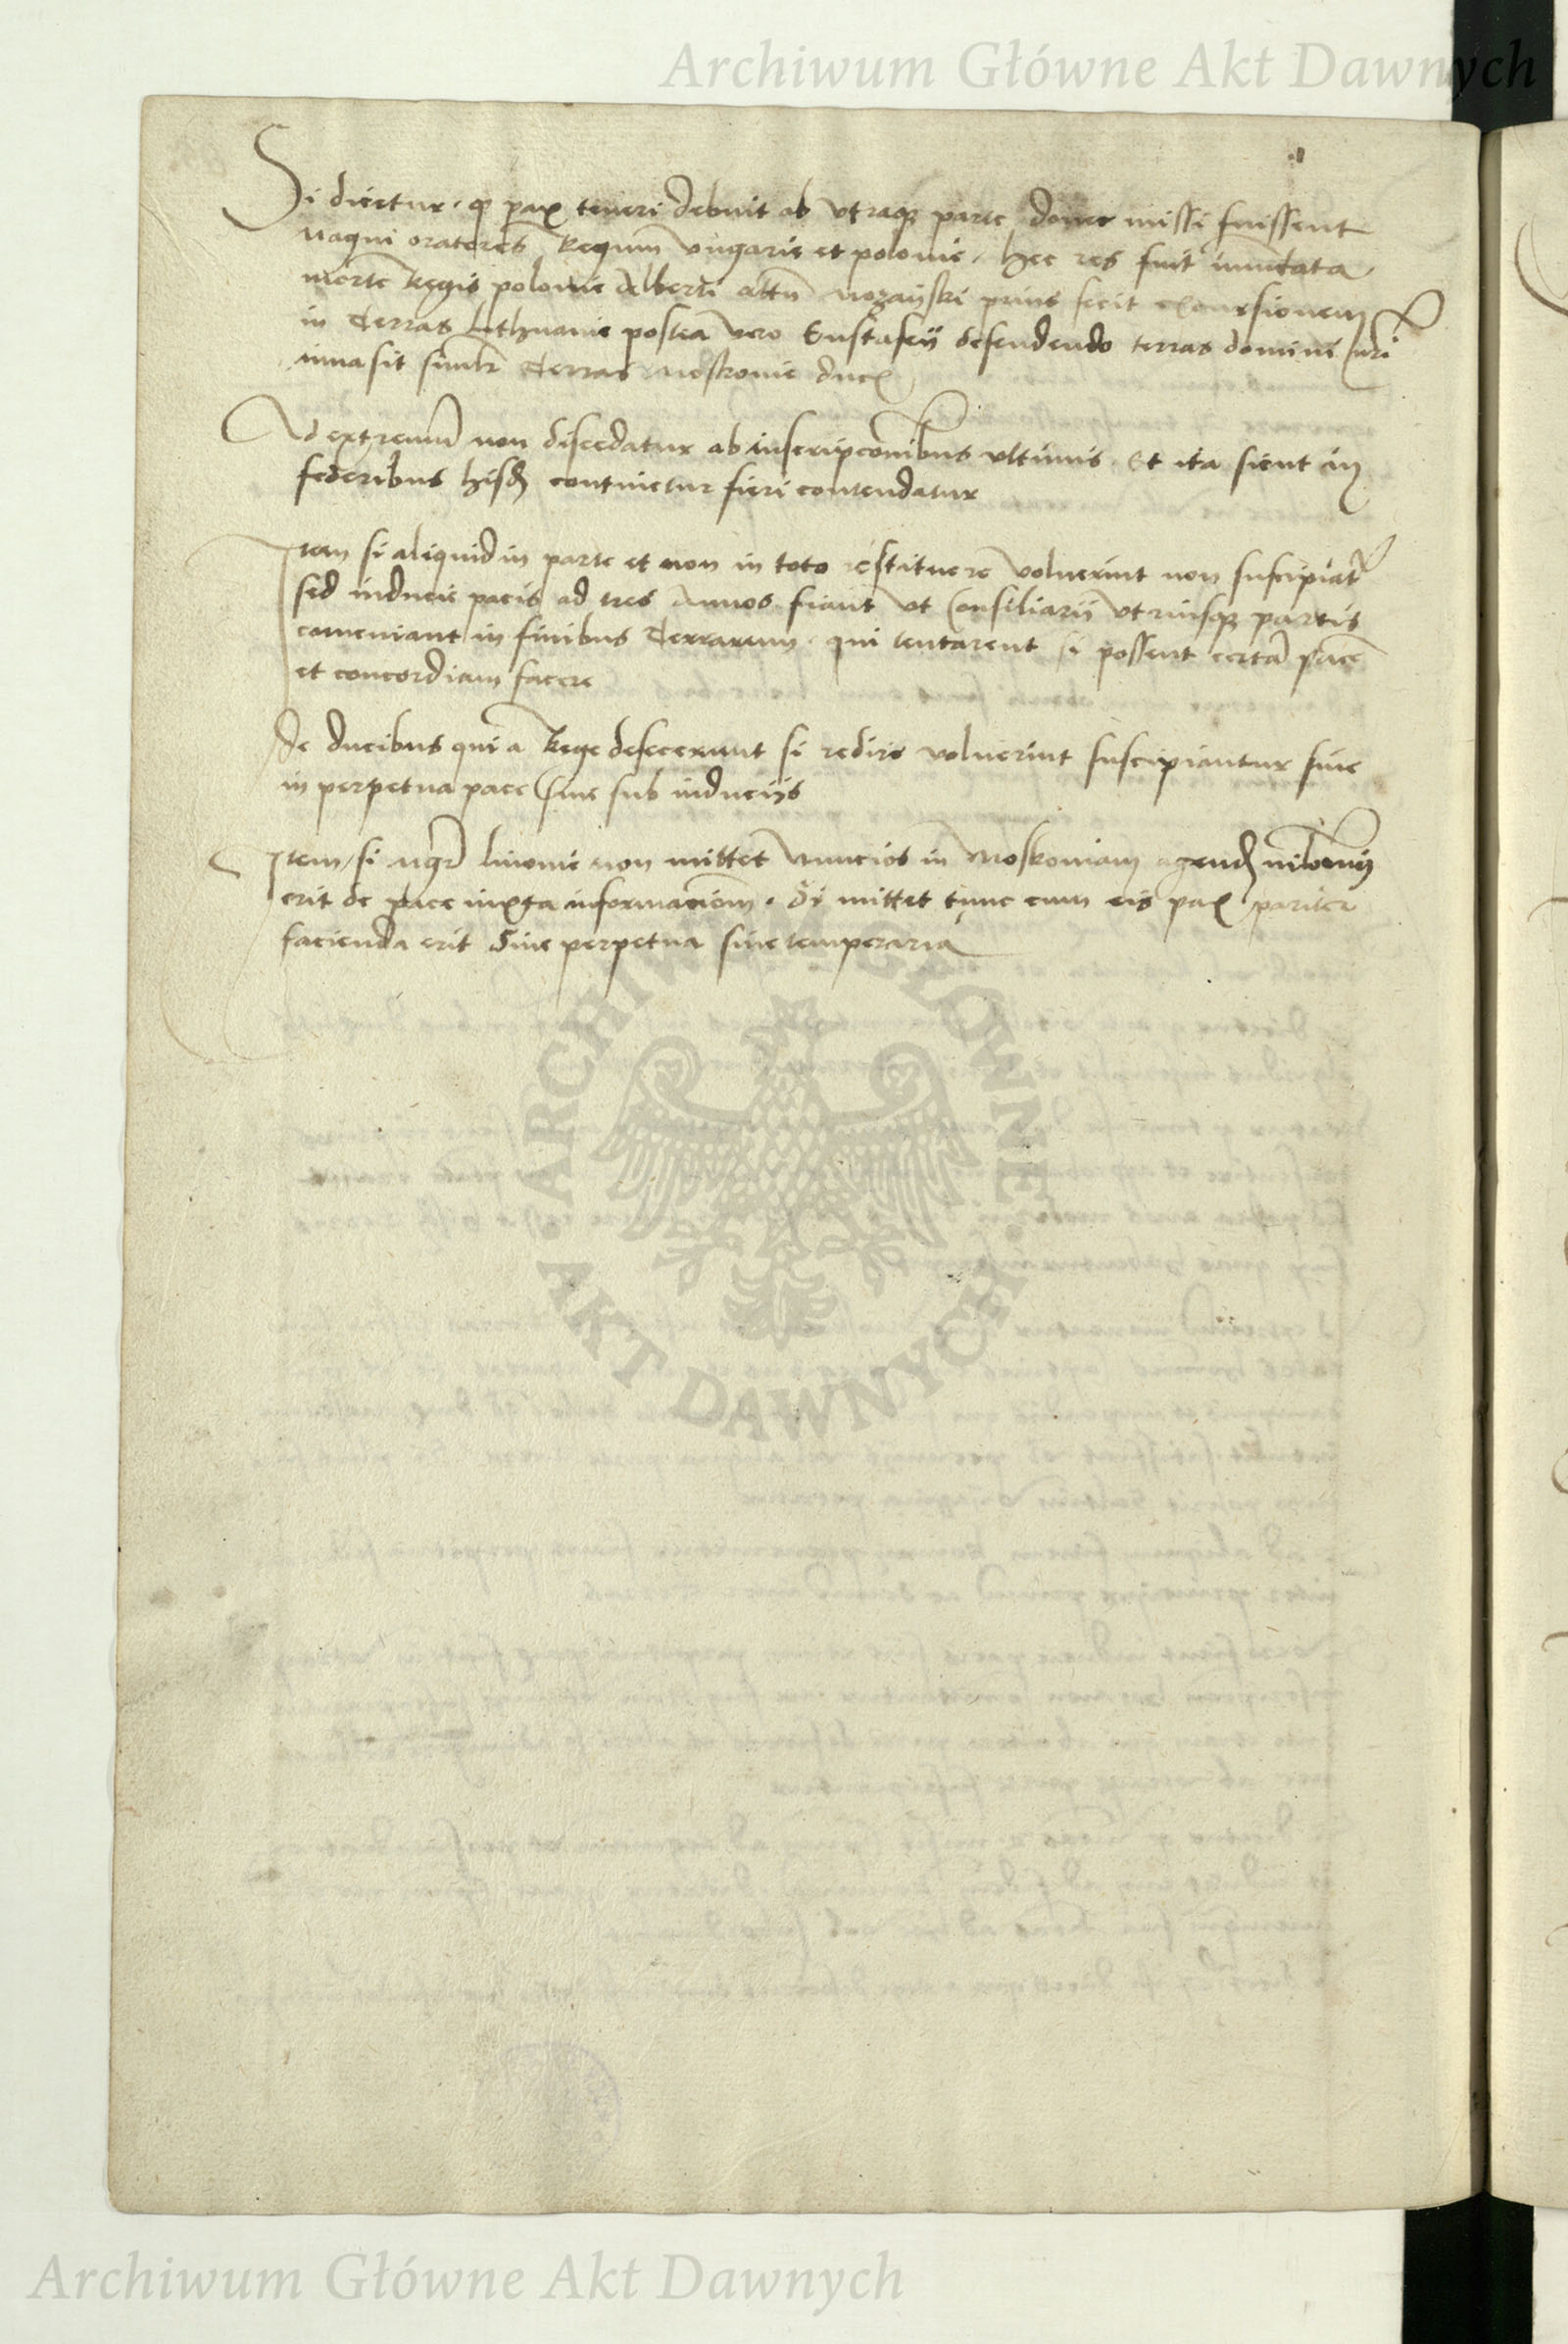 Archiwum Główne Akt Dawnych
Si dicetur, ꝙ pax teneri debuit ab vtraqꝫ parte donec missi fuissent
magni oratores Regum vngarie et polonie, hec res fuit immutata
morte Regis polonie Alberti attn̄ mozayski prius fecit excursionem
in terras Lithuanie postea vero Eustafeÿ defendendo terras domini nr̄i
inuasit simlr̄ terras Moskouie duc
Ad extremum non discedatur ab inscripcionibus vltimis. Et ita sicut in
federibus hisd continetur fieri contendatur
Item si aliquid in parte et non in toto restituere voluerint non suscipiat
sed inducie pacis ad tres Annos fiant vt Consiliarii vtriusqꝫ partis
conueniant in finibus terrarum, qui tentarent si possent certā pacē
et concordiam facere
De ducibus qui a Rege defecerunt si redire voluerint suscipiantur siue
in perpetua pace siue sub induciis
Item, si mgr̄ liuonie non mittet Nuncios in Moskouiam agend
erit de pace iuxta informacionem. Si mittet tunc cum eis pax pariter
facienda erit Siue perpetua siue temperaria
ARCHIWUM GŁÓWNE
AKT DAWNYCH
Archiwum Główne Akt Dawnych